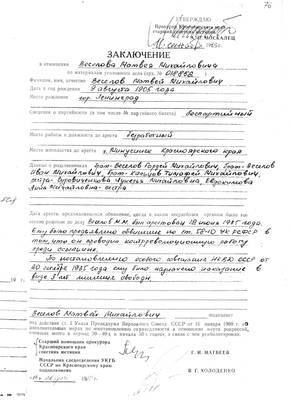 УТВЕРЖДАЮ
Прокурор Красноярского края
А.П. МОСКАЛЕЦ
1989г.
ЗАКЛЮЧЕНИЕ
в отношении Веселова Матвея Михайловича
по материалам уголовного дела (арх. №
Фамилия, имя, отчество Веселов Матвей Михайлович
Дата и год рождения 9 августа 1905 года
Место рождения гор. Ленинград
Сведения о партийности (в том числе № партийного билета) беспартийный
Место работы и должность до ареста безработный
Место жительства до ареста г. Минусинск Красноярского края
Данные о родственниках брат- Веселов Георгий Михайлович, брат- Веселов
Иван Михайлович, брат- Тимофей Михайлович,
сестра- Михайловна,
Михайловна- сестра
Дата ареста, предъявленное обвинение, когда и каким несудебным органом было вы-
несено решение по делу Веселов М.М. был арестован 18 июня 1935 года.
Ему было предъявлено обвинение по ст. 58-10 УК РСФСР в
том, что он проводил контрреволюционную работу
среди
По постановлению особого совещания НКВД СССР от
20 октября 1935 года ему было назначено наказание в
виде 3 лет лишения свободы.
Веселов Матвей Михайлович
под действие ст. 1 Указа Президиума Верховного Совета СССР от 16 января 1989 г. «О
дополнительных мерах по восстановлению справедливости в отношении жертв репрессий,
имевших место в период 30—40-х и начала 50-х годов»
Старший помощник прокурора
Красноярского края
советник юстиции
Г. И. МАТВЕЕВ
Начальник следотделения УКГБ
СССР по Красноярскому краю
подполковник
В. Г. ХОЛОДЕНКО